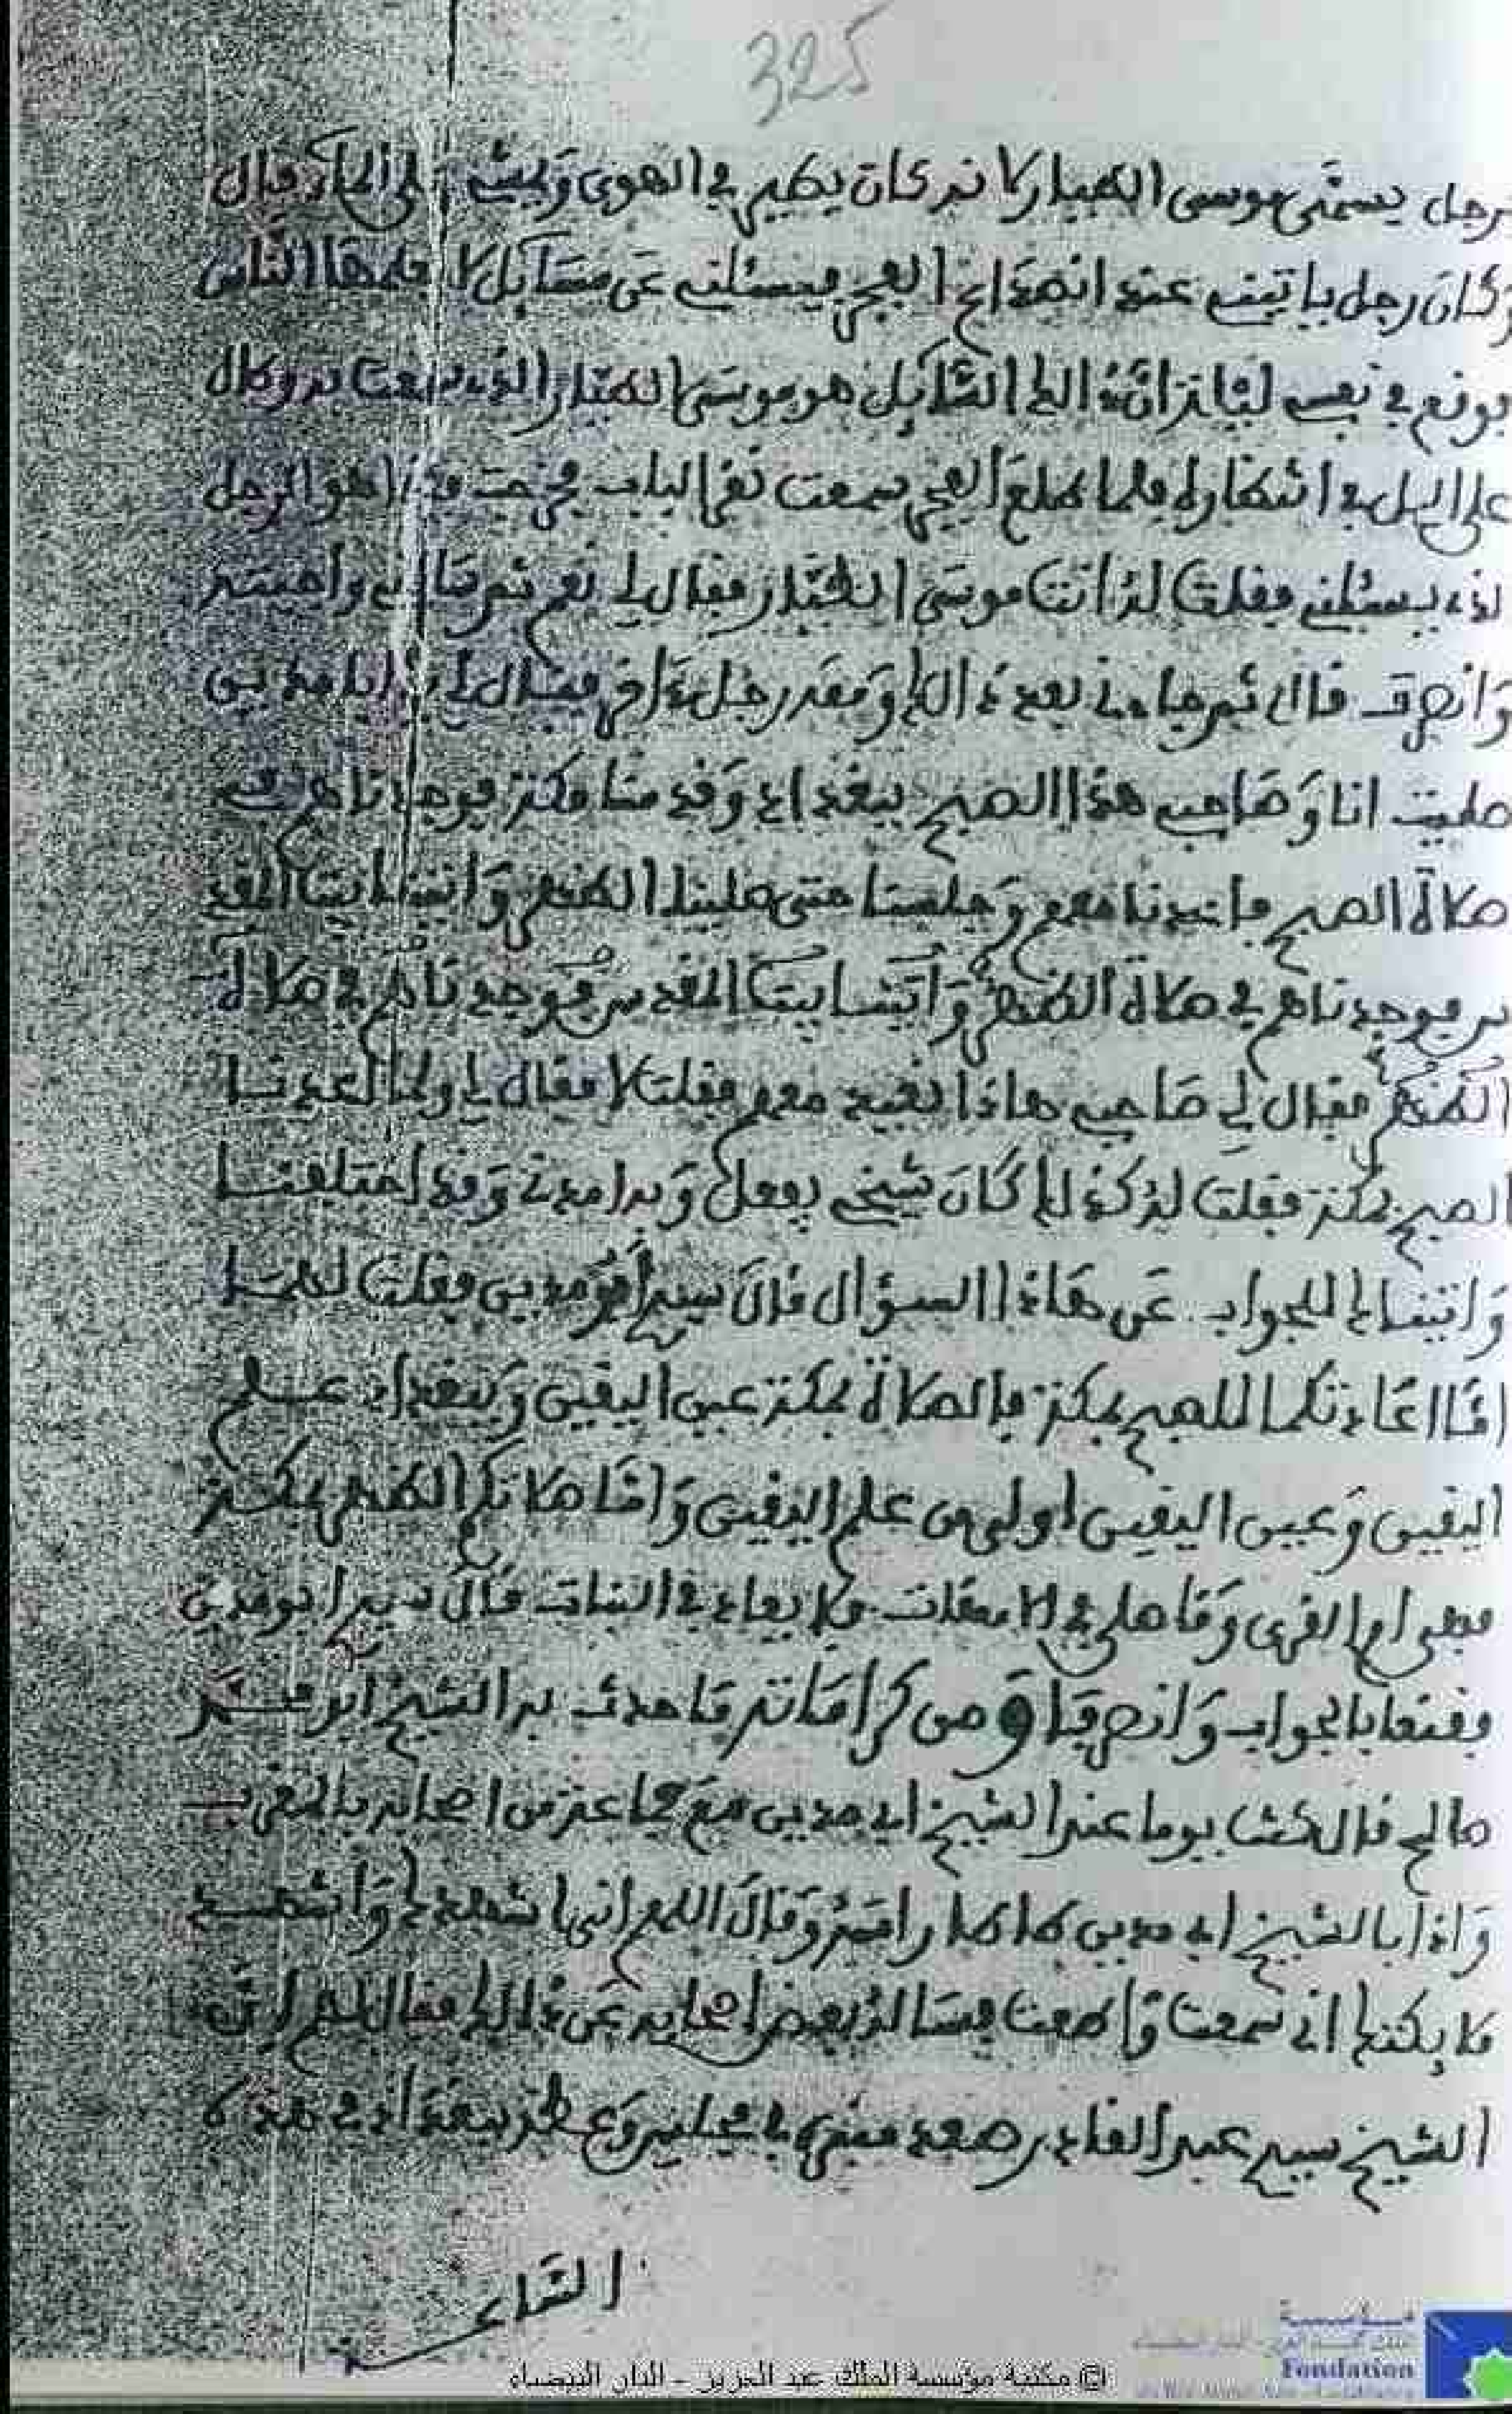 325
رجل يسمى موسى الطيار كانه كان يطير في الهوى ويمشي على الماء قال
وكان رجل ياتيني عند انصداع الفجر فيسئلني عن مسآئل لا يعلمها الناس
فوقع في نفسي ليلة انه ذالك السآئل هو موسى الطيار الذي سمعت به وطال
علي اليل في انتظاره فلما طلع الفجر سمعت نقر الباب فخرجت فاذا هو الرجل
الذي يسئلني فقلت له انت موسى الطيار فقال لي نعم ثم سالني واجبته
وانصرف قال ثم جاءني بعد ذالك ومعه رجل ءاخر فقال لي يا ابا مدين
صليت انا وصاحبي هذا الصبح ببغداد وقدمنا مكة فوجدناهم في
صلاة الصبح فاعدنا معهم وجلسنا حتى صلينا الظهر واتينا بيت المقد
س فوجدناهم في صلاة الظهر واتينا بيت المقدس فوجدناهم في صلاة
الظهر فقال لي صاحبي هاذا نعيد معهم فقلت لا فقال لي ولم اعدنا
الصبح بمكة فقلت له كذلك كان شيخي يفعل وبه امرنا وقد اختلفنا
واتيناك للجواب عن هاذا السؤال قال سيدي ابو مدين فقلت لهما
اما اعادتكما للصبح بمكة فالصلاة بمكة عين اليقين وببغداد علم
اليقين وعين اليقين اولى من علم اليقين واما صلاتكم الظهر بمكة
فهي ام القرى وما صلي في الامهات فلا يعاد في البنات قال سيدي ابو مدين
فقنعا بالجواب وانصرفا ومن كراماته ما حدث به الشيخ ابو محمد
صالح قال كنت يوما عند الشيخ ابي مدين مع جماعة من اصحابه بالمغرب
واذا بالشيخ ابي مدين طاطا راسه وقال اللهم اني اشهدك واشهد
ملايكتك اني سمعت واطعت فسأله بعض اصحابه عن ذالك فقال لهم ان
الشيخ سيدي عبد القادر صعد منبره في مجلس وعظه ببغداد في هذه
الساعة
© مكتبة مؤسسة الملك عبد العزيز - الدار البيضاء
Fondation